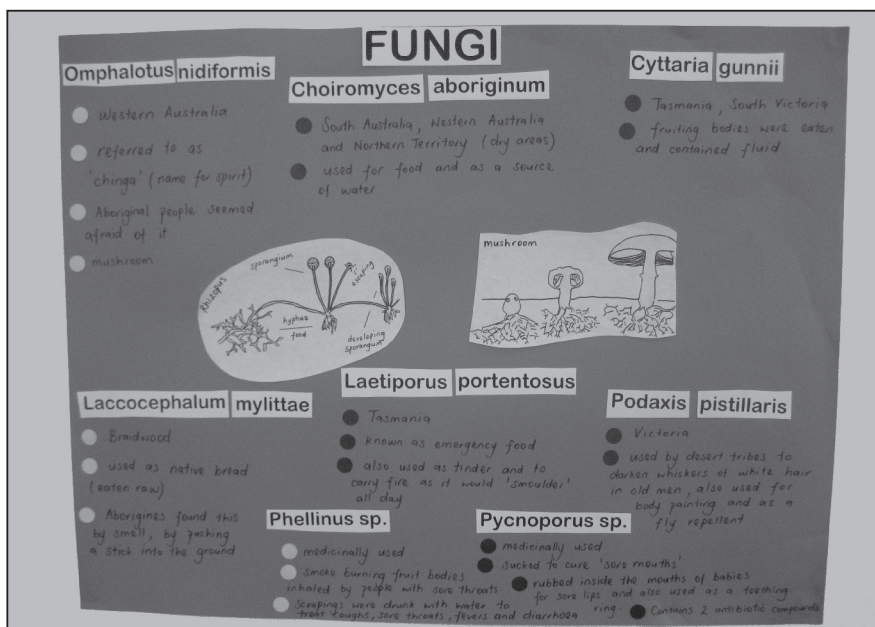 FUNGI
Omphalotus nidiformis
Western Australia
referred to as
'chinga' (name for spirit)
Aboriginal people seemed
afraid of it
mushroom
Choiromyces aboriginum
South Australia, Western Australia
and Northern Territory (dry areas)
used for food and as a source
of water
Cyttaria gunnii
Tasmania, South Victoria
fruiting bodies were eaten
and contained fluid
Rhizopus
sporangium
escaping
hyphae
food
developing
sporangium
mushroom
Laccocephalum mylittae
Braidwood
used as native bread
(eaten raw)
Aborigines found this
by smell, by pushing
a stick into the ground
Laetiporus portentosus
Tasmania
known as emergency food
also used as tinder and to
carry fire as it would 'smoulder'
all day
Podaxis pistillaris
Victoria
used by desert tribes to
darken whiskers of white hair
in old men, also used for
body painting and as a
fly repellent
Phellinus sp.
medicinally used
smoke burning fruit bodies
inhaled by people with sore throats
Scrapings were drunk with water to
treat coughs, sore throats, fevers and diarrhoea
Pycnoporus sp.
medicinally used
sucked to cure 'sore mouths'
rubbed inside the mouths of babies
for sore lips and also used as a teething
ring.
Contains 2 antibiotic compounds